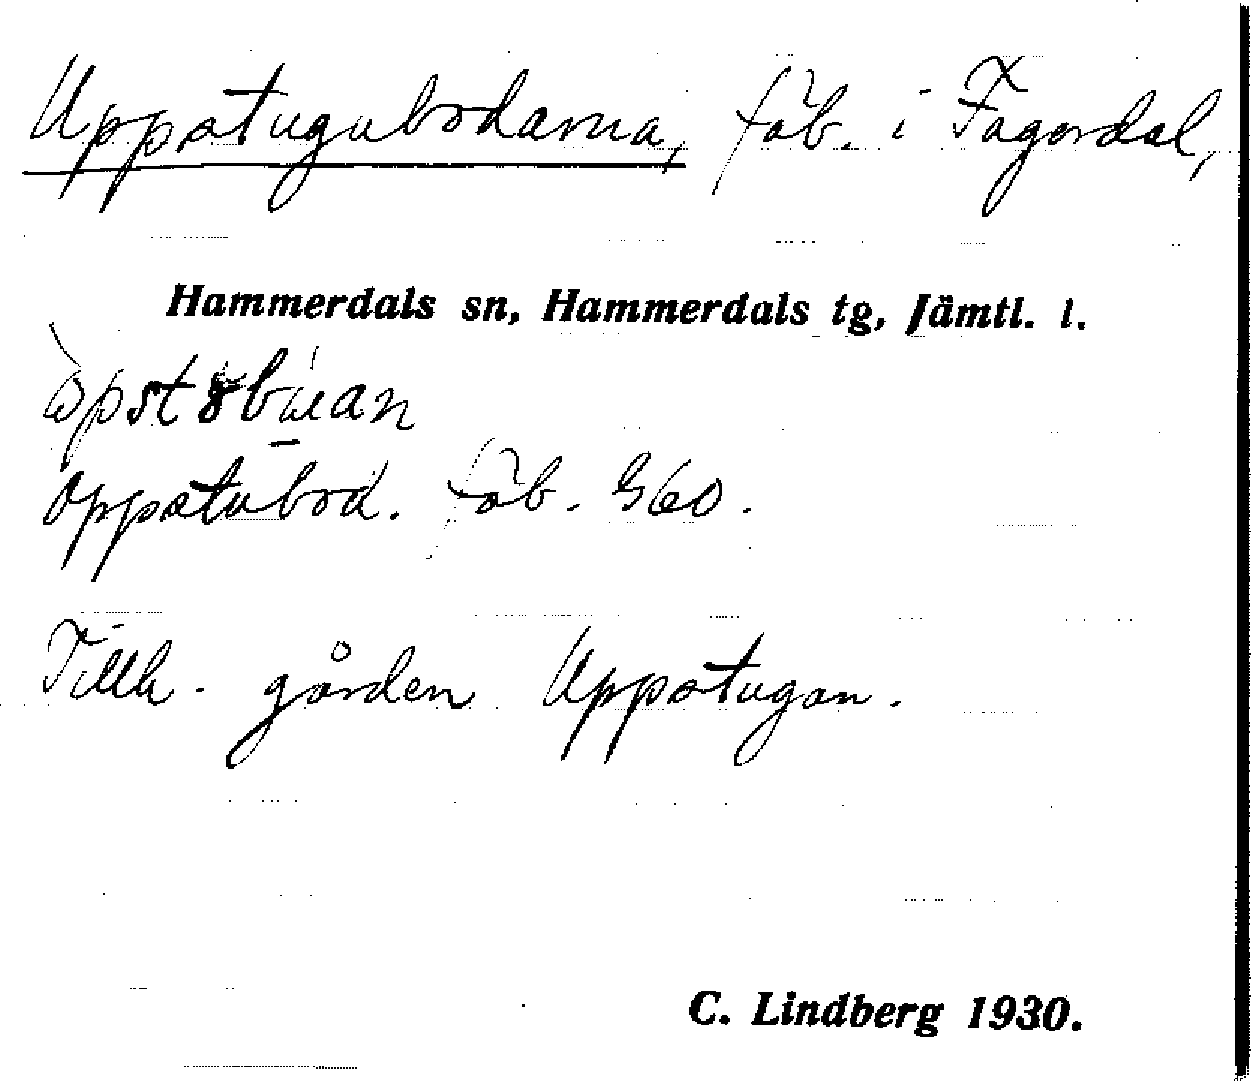 Uppstugubodarna, fäb. i Fagerdal,
Hammerdals sn, Hammerdals tg, Jämtl. l.
Oppstubod. fäb. G60.
Tillh. gården Uppstugan.
C. Lindberg 1930.